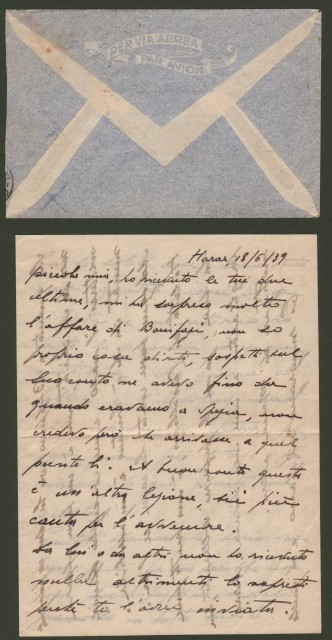 PER VIA AEREA
PAR AVION
Harar, 18/6/39
piccola mia, ho ricevuto le tue due
ultime, mi ha sorpreso molto
l'affare di Bonifazi, non so
proprio cosa dirti, sospetti sul
suo conto ne avevo fino da
quando eravamo a , non
credevo però che arrivasse a quel
punto lì. A buon conto questa
è un'altra lezione, sii più
cauta per l'avvenire.
Da lui o da altri non ho ricevuto
nulla altrimenti lo sapresti
perché te l'avrei inviato.